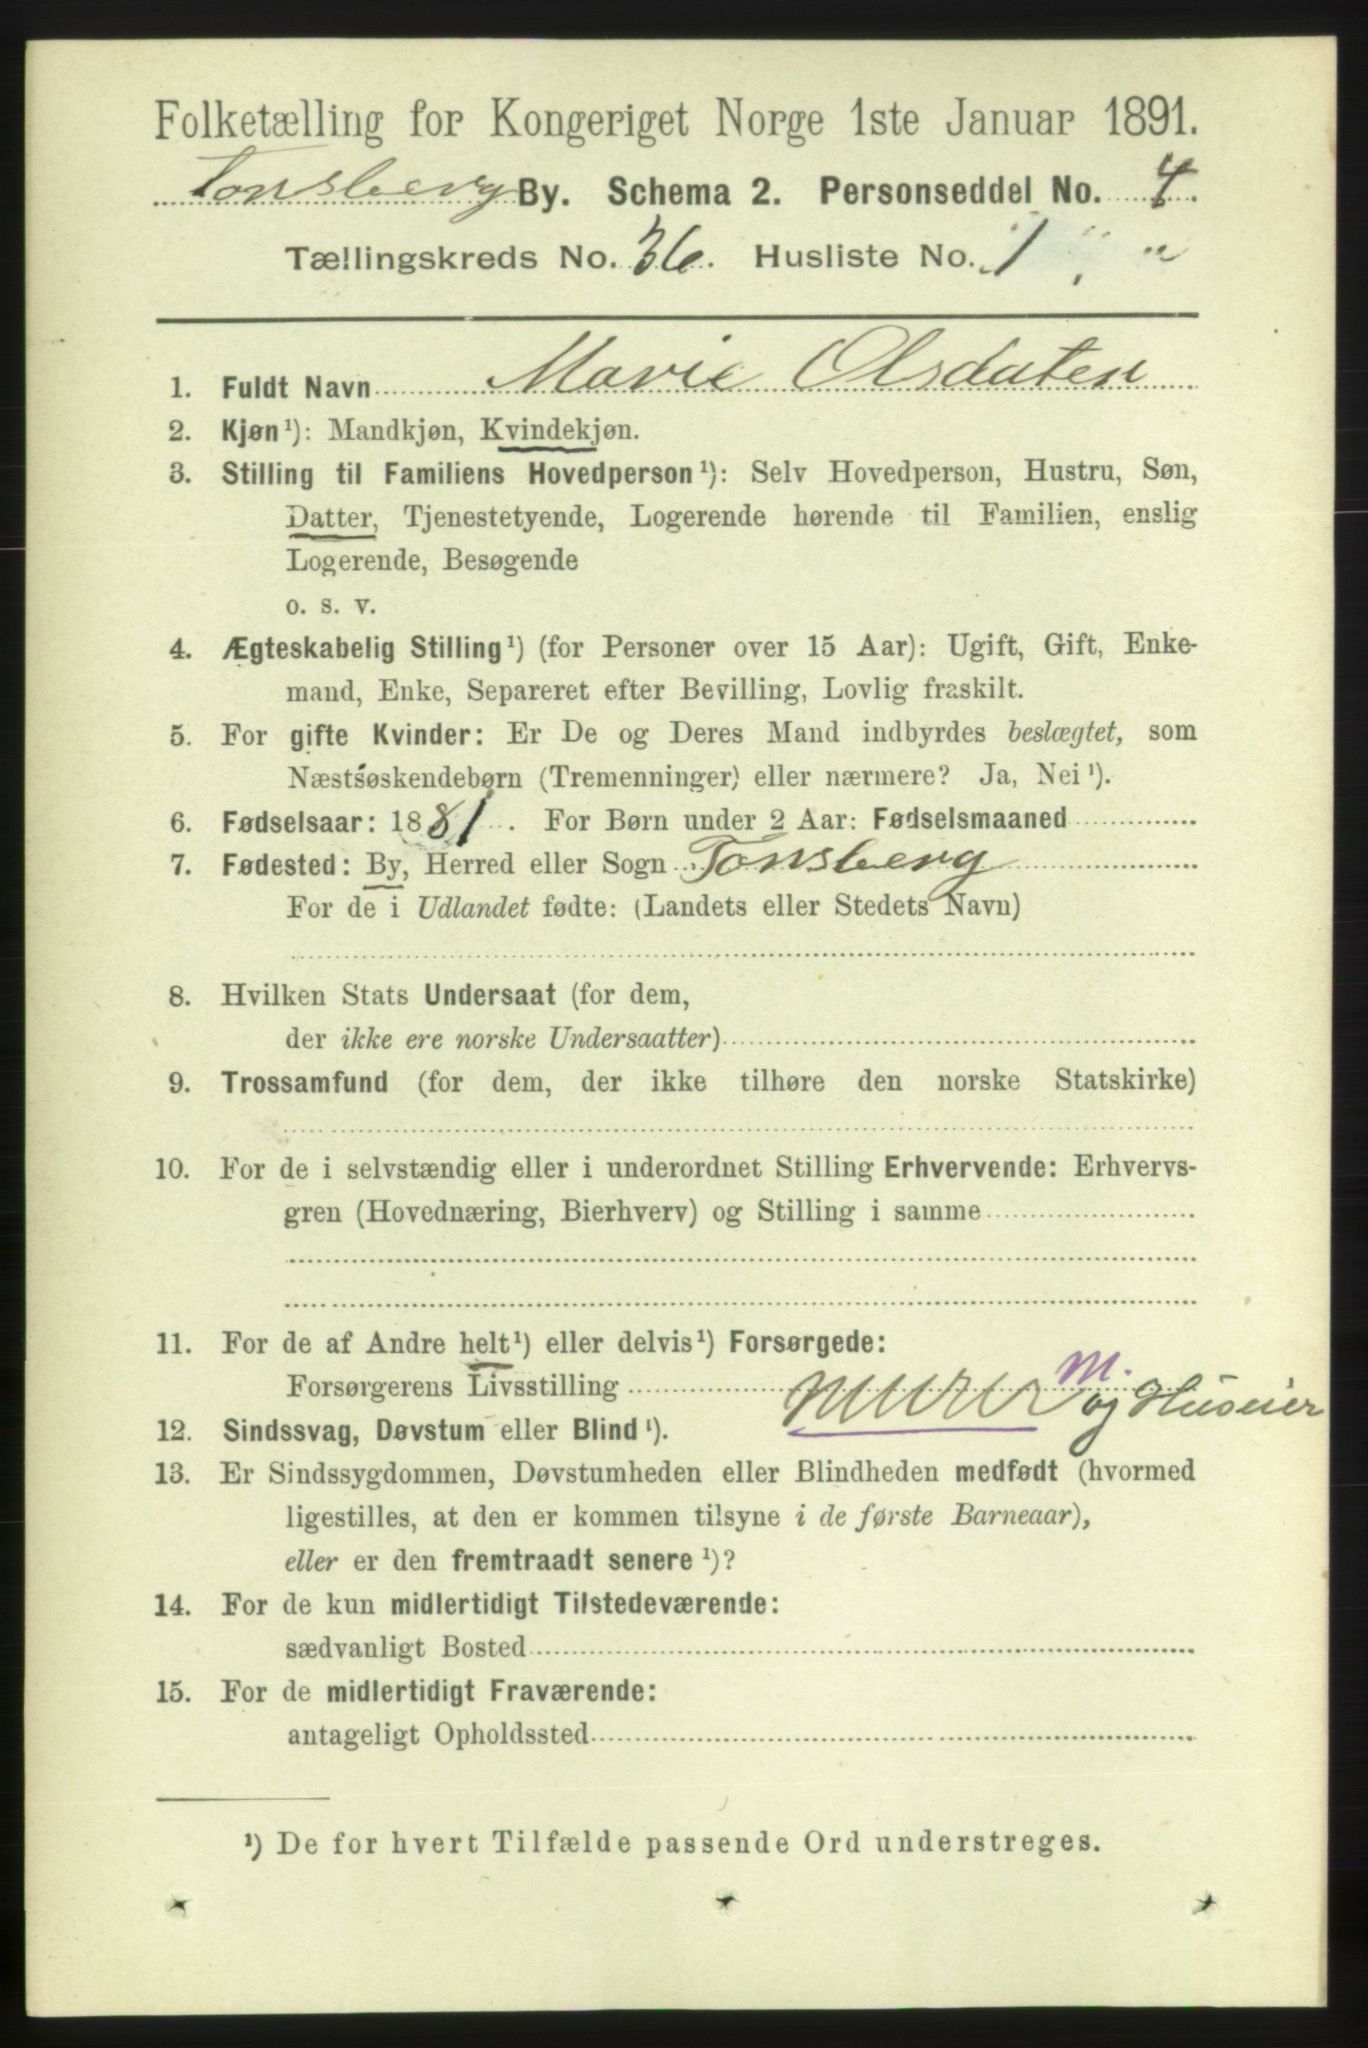 Folketælling for Kongeriget Norge 1ste Januar 1891.
Tonsberg By. Schema 2. Personseddel No. 4.
Tællingskreds No. 36. Husliste No. 1
1. Fuldt Navn Marie Olsdaten
2. Kjøn¹): Mandkjøn, Kvindekjøn.
3. Stilling til Familiens Hovedperson¹): Selv Hovedperson, Hustru, Søn,
Datter, Tjenestetyende, Logerende hørende til Familien, enslig
Logerende, Besøgende
o. s. v.
4. Ægteskabelig Stilling¹) (for Personer over 15 Aar): Ugift, Gift, Enke-
mand, Enke, Separeret efter Bevilling, Lovlig fraskilt.
5. For gifte Kvinder: Er De og Deres Mand indbyrdes beslægtet, som
Næstsøskendebørn (Tremenninger) eller nærmere? Ja, Nei¹).
6. Fødselsaar: 1881. For Børn under 2 Aar: Fødselsmaaned
7. Fødested: By, Herred eller Sogn Tonsberg
For de i Udlandet fødte: (Landets eller Stedets Navn)
8. Hvilken Stats Undersaat (for dem,
der ikke ere norske Undersaatter)
9. Trossamfund (for dem, der ikke tilhøre den norske Statskirke)
10. For de i selvstændig eller i underordnet Stilling Erhvervende: Erhvervs-
gren (Hovednæring, Bierhverv) og Stilling i samme
11. For de af Andre helt¹) eller delvis¹) Forsørgede:
M.
Forsørgerens Livsstilling Murer og Huseier
12. Sindssvag, Døvstum eller Blind¹).
13. Er Sindssygdommen, Døvstumheden eller Blindheden medfødt (hvormed
ligestilles, at den er kommen tilsyne i de første Barneaar),
eller er den fremtraadt senere¹)?
14. For de kun midlertidigt Tilstedeværende:
sædvanligt Bosted
15. For de midlertidigt Fraværende:
antageligt Opholdssted
¹) De for hvert Tilfælde passende Ord understreges.